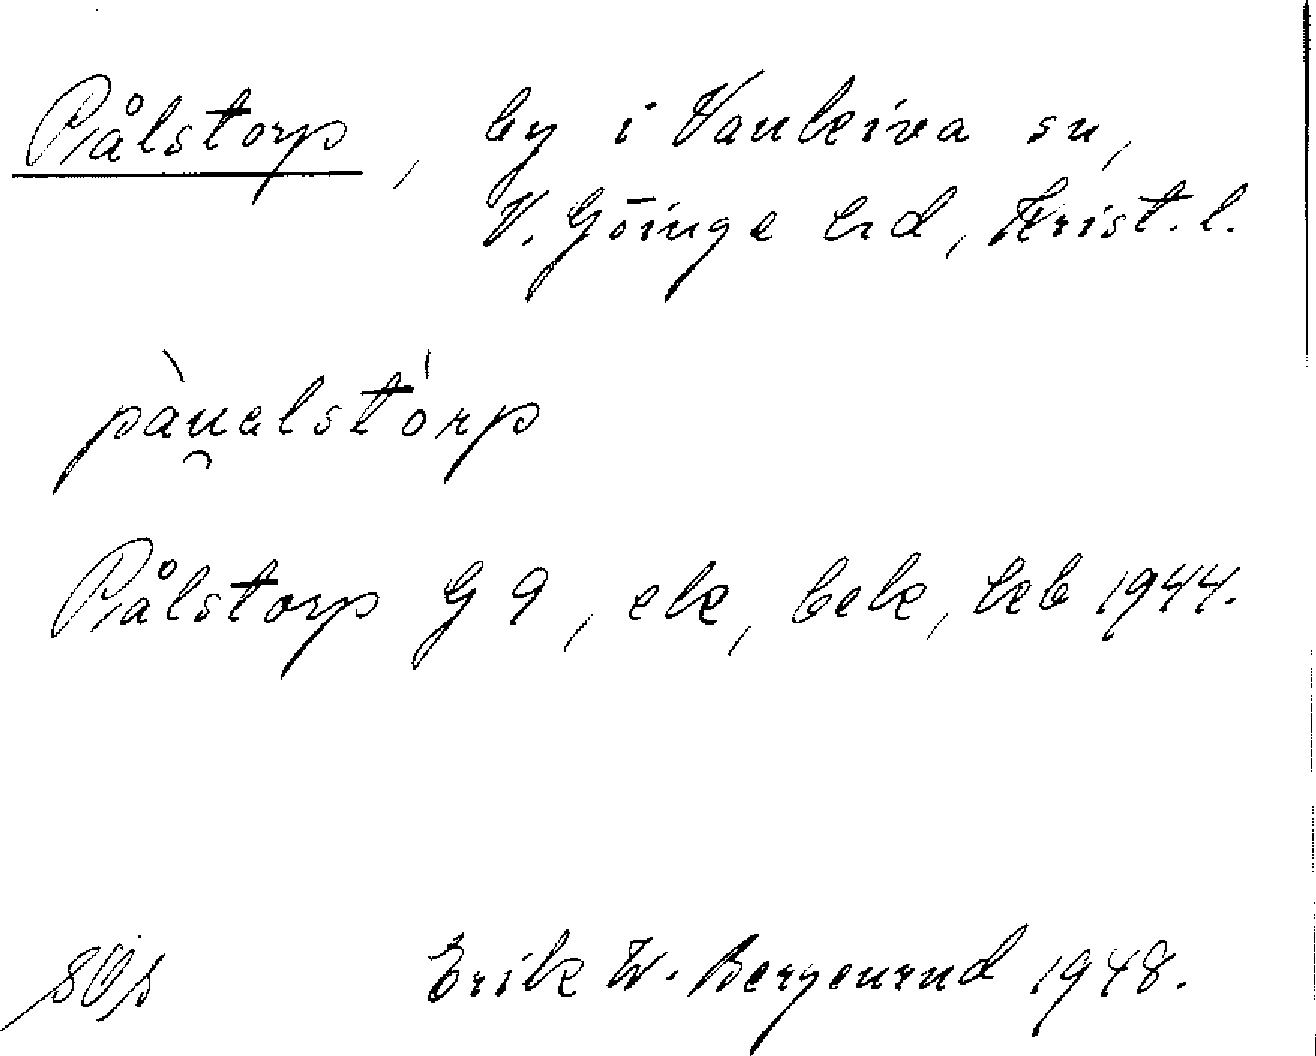 Pålstorp, by i Vankiva sn,
V. Göinge hd, Krist. l.
pàu̯alstórp
Pålstorp G 9, ek, bek, hkb 1944.
Erik W. Bergenrud 1948.